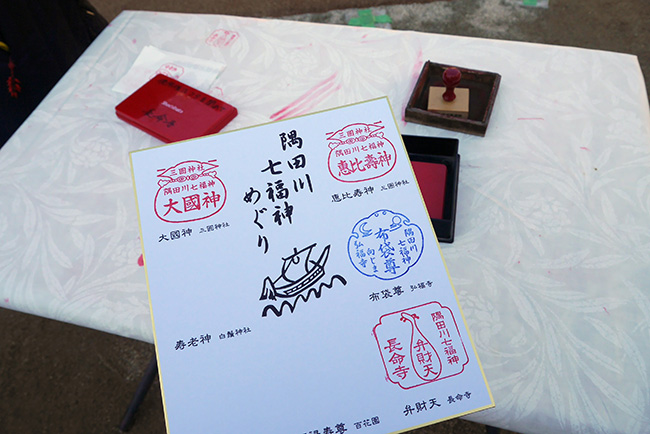 隅田川
七福神
めぐり
三囲神社
隅田川七福神
大國神
大國神 三囲神社
三囲神社
隅田川七福神
恵比壽神
恵比壽神 三囲神社
隅田川
七福神
布袋尊
向じま
弘福寺
布袋尊 弘福寺
壽老神 白鬚神社
隅田川七福神
弁財天
長命寺
弁財天 長命寺
尊 百花園
長命寺